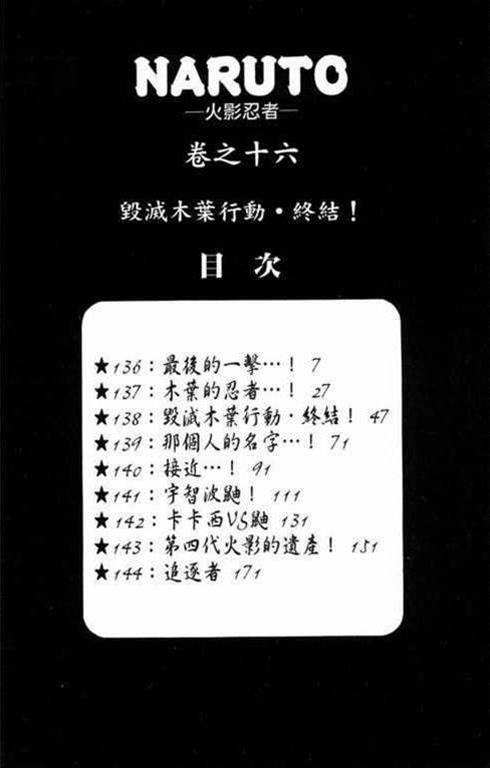 NARUTO
—火影忍者—
卷之十六
毀滅木葉行動·終結！
目 次
★136：最後的一擊…！ 7
★137：木葉的忍者…！ 27
★138：毀滅木葉行動·終結！ 47
★139：那個人的名字…！ 71
★140：接近…！ 91
★141：宇智波鼬！ 111
★142：卡卡西VS鼬 131
★143：第四代火影的遺產！ 151
★144：追逐者 171